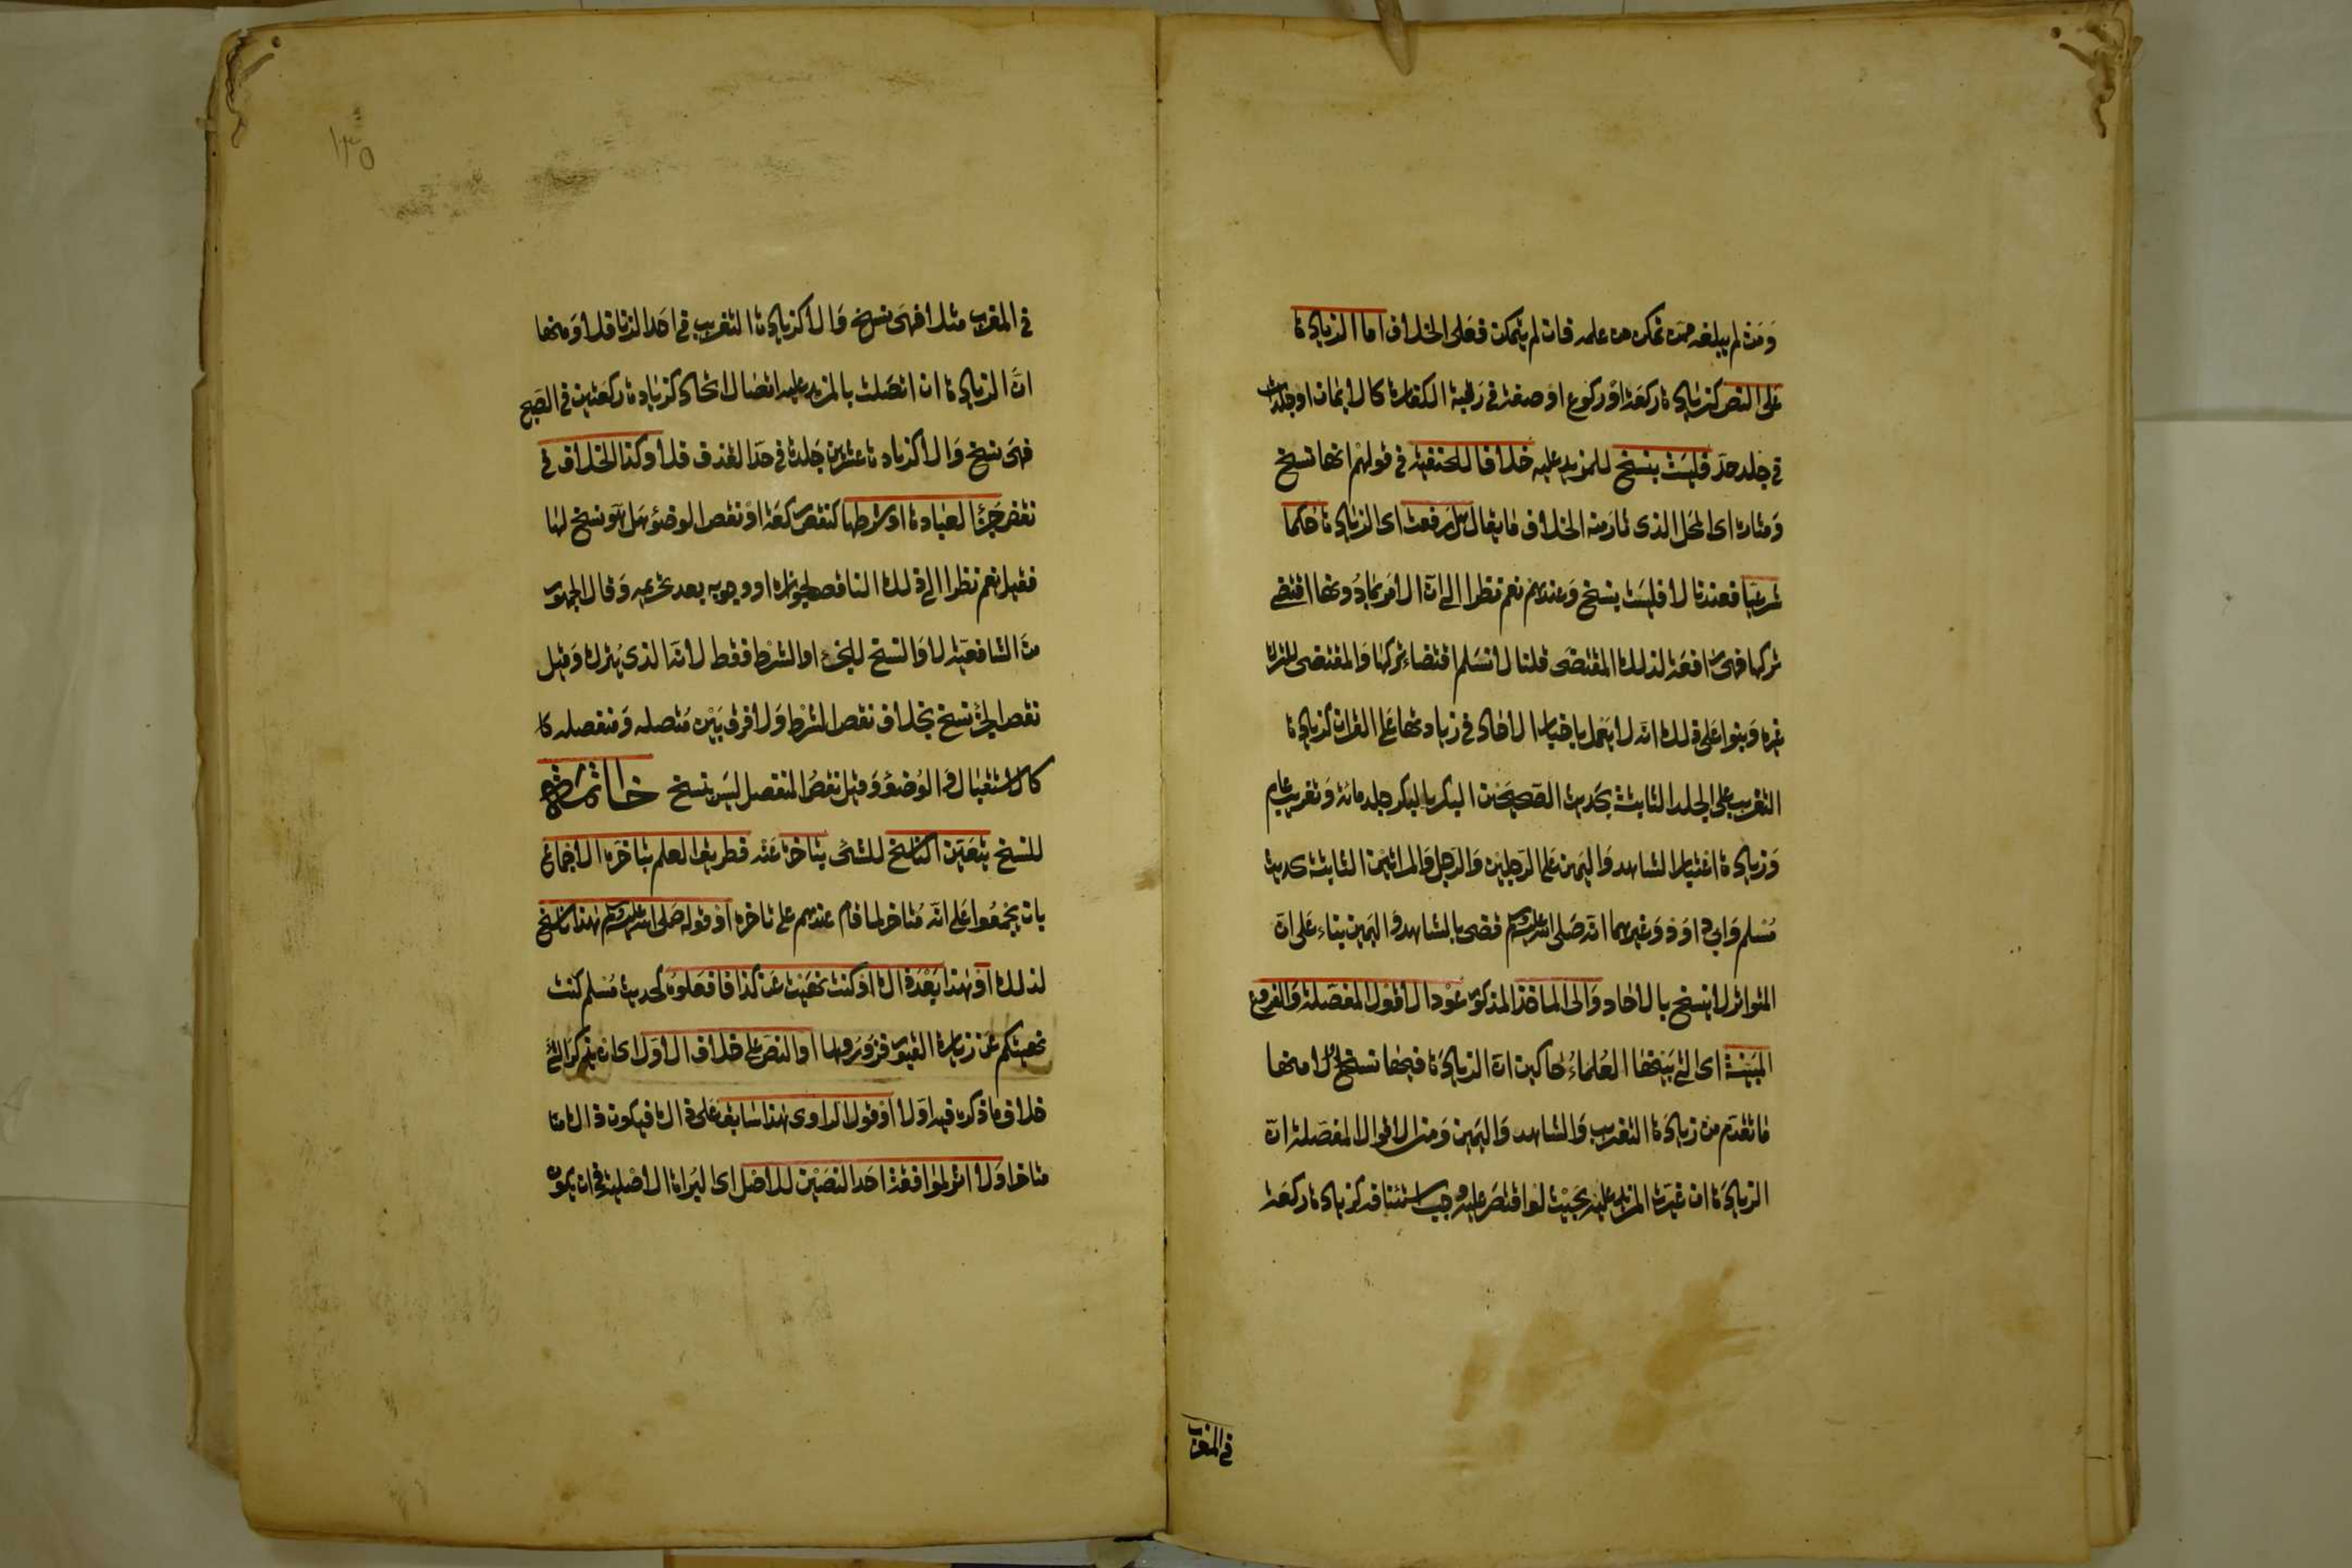 وَمَن لم يبلغه ممن تمكن من علمه فان لم يتمكن فعلى الخلاف اما الزيادة
على النص كزيادة ركعة او ركوع او صفة في رقبة الكفارة كالايمان او جلدات
في جلد حد فليست بنسخ للمزيد عليه خلافا للحنفية في قولهم انها نسخ
وَمثاره اى المحل الذى ثار منه الخلاف ما يقال هل رفعت اى الزيادة حكما
شرعيا فعندنا لا فليست بنسخ وَعندهم نعم نظرا الى ان الامر بما دونها اقتضى
تركها فهى رافعة لذلك المقتضى قلنا لا نسلم اقتضاء تركها وَالمقتضى للترك
غيره وَبنوا على ذلك انه لا يعمل باخبار الاحاد في زيادتها على القران كزيادة
التغريب على الجلد الثابتة بحديث الصحيحين البكر بالبكر جلد مائة وَتغريب عام
وَزيادة اعتبار الشاهد وَاليمين على الرجلين وَالرجل وَالمراتين الثابتة بحديث
مُسلم وَابي داوَد وَغيرهما انه صَلى الله عليه وسلم قضى بالشاهد وَاليمين بناء عَلى ان
المتواتر لا ينسخ بالاحاد وَالى الماخذ المذكور عَوْد الاقوال المفصّلة وَالفروع
المبَينة اى التي بَينها العُلماءُ حاكين ان الزيادَة فيها نسخ اولا منها
ما تقدّم من زيادَة التغريب وَالشاهد وَاليمين وَمن الاقوال المفصّلة ان
الزيادَة ان غيرت المزيد عليه بحَيْث لو اقتصَر عليه وجب استئنافه كزيادة ركعة
في المغرب
١٣٥
في المغرب مثلا فهى نسخ وَالا كزيادة التغريب في احَد الزنا فلا وَمنها
انّ الزيادة ان اتصَلت بالمزيد عليه اتصَال اتحاد كزيادة ركعتين في الصّبح
فهى نسخ وَالا كزيادة عشرين جَلدة في حدّ القذف فلا وكذا الخلاف في
نقص جُزْءِ العبادة او شرطها كنقص ركعة اوْ نقص الوضؤ هَل هَو نسخ لها
فقيل نعم نظرا الى ذلك الناقص لجوازه او وجوبه بعد تحريمه وَقال الجمهور
منَ الشافعيّة لا وَالنسخ للجزء او الشرْط فقط لانه الذى يُترك وَقيل
نقص الجزء نسخ بخلاف نقص الشرْط وَلا فرق بَيْن مُتصله وَمنفصله كا
كالاستقبال وَالوُضؤ وَقيل نقصُ المنفصل ليسَ بنسخ خاتمة
للنسخ يتعَين الناسخ للشئ بتاخره عَنه فطريق العلم بتاخّره الاجماع
بان يجمعُوا عَلى انه مُتاخر لما قام عندهم على تاخره اوْ قوله صَلى الله عليه وسلم هذا ناسخ
لذلك اوْ هذا بَعْد ذاك او كنت نهَيت عَن كذا فافعَلوه كحديث مُسلم كنت
نهيتكم عَن زيارة القبور فزُورُوها او النصّ على خلاف الاوّل اى ان يذكر الشئ
خلاف ما ذكره فيه اوّلا اوْ قول الراوى هذا سَابق عَلى ذاك فيكون ذاك
متاخرا وَلا اثر لموَافقة احَد النصّيْن للاصْل اى البرَاءة الاصْلية في ان يكون